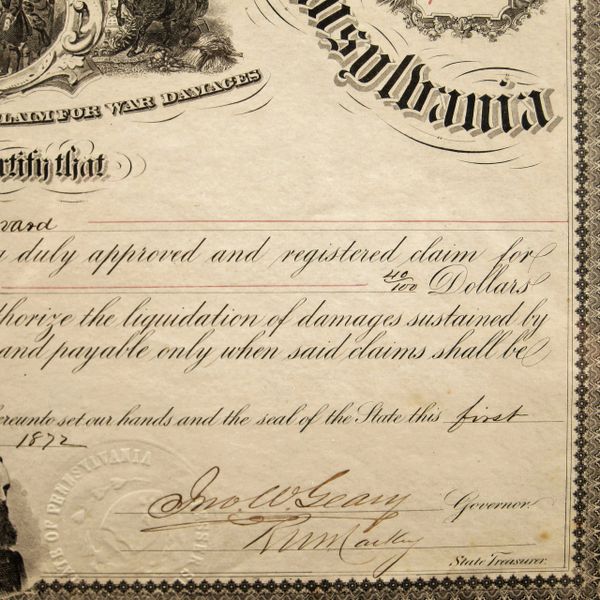 nsylvania
LAIM FOR WAR DAMAGES
rtify that
ward
duly approved and registered claim for
40/100 Dollars
thorize the liquidation of damages sustained by
and payable only when said claims shall be
ereunto set our hands and the seal of the State this first
1872
OF PENNSYLVANIA
Jno. W. Geary Governor.
R W Mackey
State Treasurer.